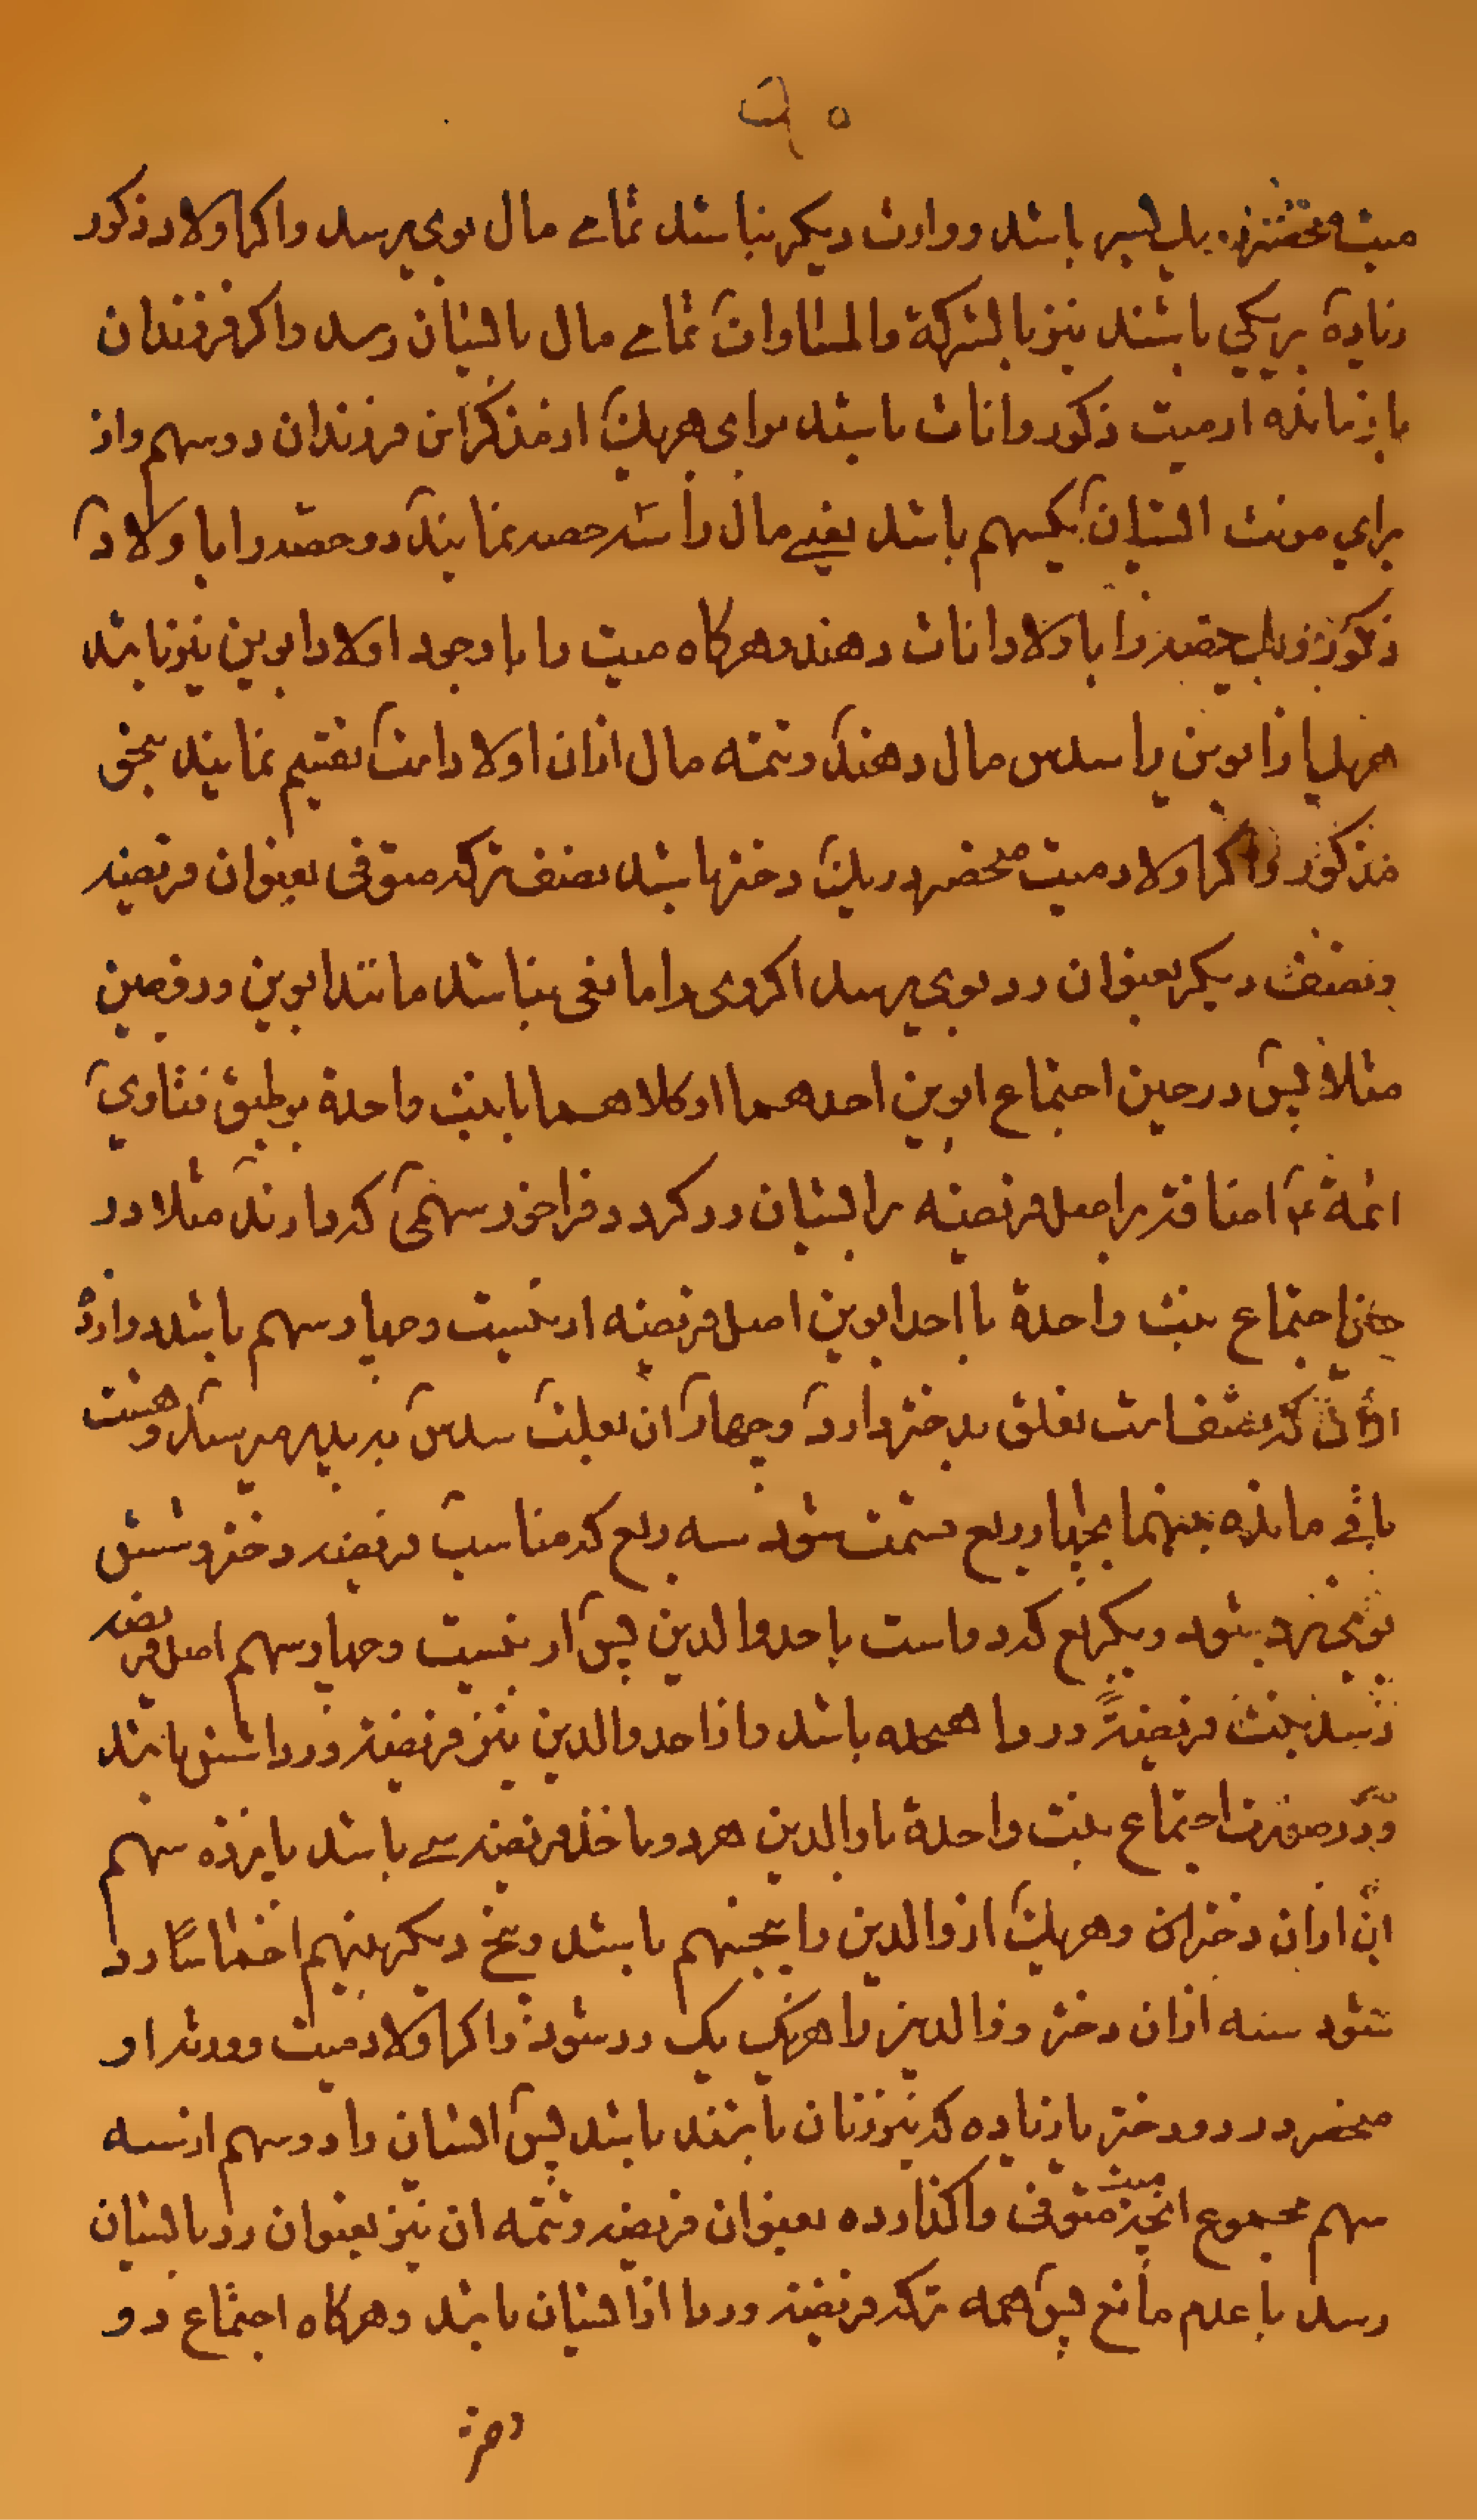 میت منحصر در یک پسر باشد و وارث دیکر نباشد تمامے مال بوی برسد و اکر اولاد ذکور
زیاده بر یکی باشند نیز بالشرکة والمساوات تمامے مال بایشان رسد و اکر فرزندان
بازمانده از میت ذکور و اناث باشد برای هر یک از مذکر این فرزندان دو سهم و از
برای مونث ایشان یکسهم باشد یعنے مال را سه حصه نمایند دو حصه را با ولاد
ذکور و یک حصه را باولاد اناث دهند و هرکاه میت را با وجود اولاد ابوین نیز باشد
هریک از ابوین را سدس مال دهند و تتمه مال از ان اولاد است تقسیم نمایند بنحو
مذکور و اکر اولاد میت منحصر در یک دختر باشد نصف ترکه متوفی بعنوان فریضه
و نصف دیکر بعنوان رد بوی برسد اکر وی را مانعی نباشد مانند ابوین و زوجین
مثلا پس در حین اجتماع ابوین احدهما او کلاهما با بنت واحدة بر طبق فتاوی
ائمة ع اضافه بر اصل فریضه بر ایشان رد کردد فراخور سهمی که دارند مثلا در
حین اجتماع بنت واحدة با احد ابوین اصل فریضه از بیست و چهار سهم باشد دوازده
از ان که نصف است تعلق بدختر دارد و چهار ان بعلت سدس به پدر میرسد و هشت
باقی مانده بینهما بچهار ربع قسمت شود سه ربع که مناسب فریضه دختر و شش
بود بنت رد شود و یکربع که دو است باحد والدین پس از بیست و چهار سهم اصل فریضه
رسد بنت فریضةً و ردا هیجده باشد و از احد والدین نیز فریضه و ردا شش باشد
و در صورت اجتماع بنت واحدة با والدین هر دو ماخذ فریضه سے باشد پانزده سهم
ان از ان دختر ان و هر یک از والدین را پنجسهم باشد و پنج دیکر بینهم اخماسًا رد
شود سه از ان دختر و والدین را هر یک یک رد شود و اکر اولاد میت و ورثه او
منحصر در دو دختر یا زیاده که نیز زنان باشند باشد پس ایشان را دو سهم از سه
سهم مجموع انچه میت متوفی واکذارده بعنوان فریضه و تتمه ان نیز بعنوان رد بایشان
رسد با عدم مانع پس همه ترکه فریضه و ردا از ایشان باشد و هرکاه اجتماع دو
دختر